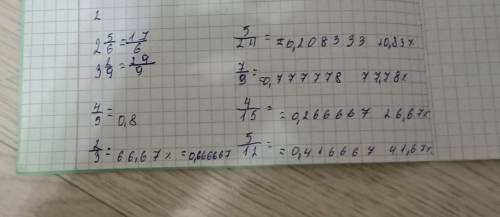 2
2 5/6 = 17/6
3 2/9 = 29/9
4/5 = 0,8
2/3 = 66,67% = 0,666667
5/24 = = 0,208333 20,83%
7/9 = = 0,777778 77,78%
4/15 = = 0,266667 26,67%
5/12 = = 0,416667 41,67%